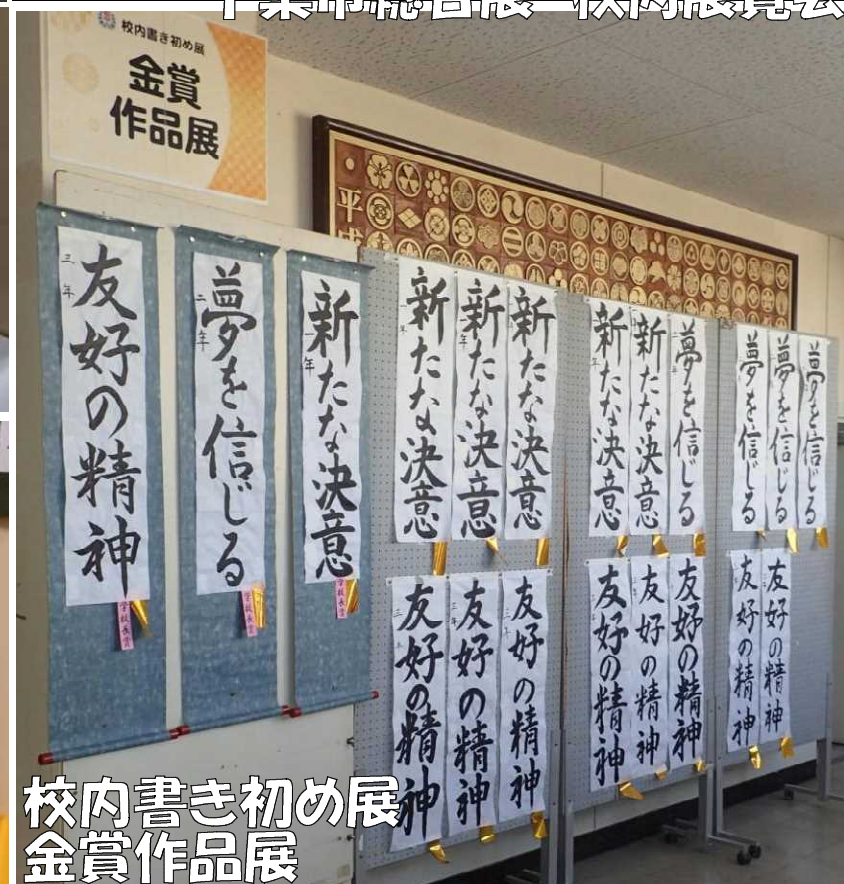 校内書き初め展
金賞
作品展
平成
三年
友好の精神
学校長賞
二年
夢を信じる
学校長賞
一年
新たな決意
学校長賞
新たな決意
新たな決意
新たな決意
新たな決意
新たな決意
夢を信じる
夢を信じる
夢を信じる
夢を信じる
友好の精神
友好の精神
友好の精神
友好の精神
友好の精神
友好の精神
友好の精神
友好の精神
校内書き初め展
金賞作品展